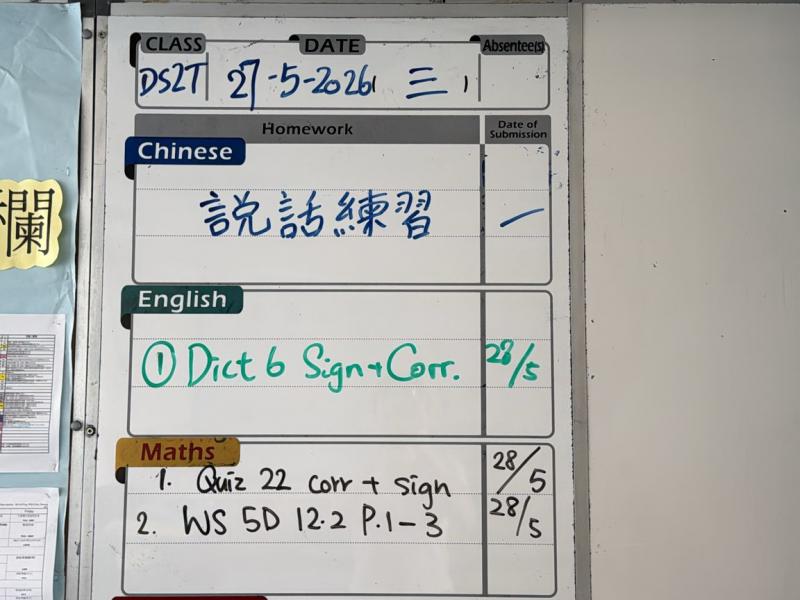 CLASS DATE Absentee(s)
DS2T 27-5-2026 (三)
Homework Date of Submission
Chinese
説話練習 一
English
① Dict 6 Sign + Corr. 28/5
Maths
1. Quiz 22 corr + sign 28/5
2. WS 5D 12.2 P.1-3 28/5
欄